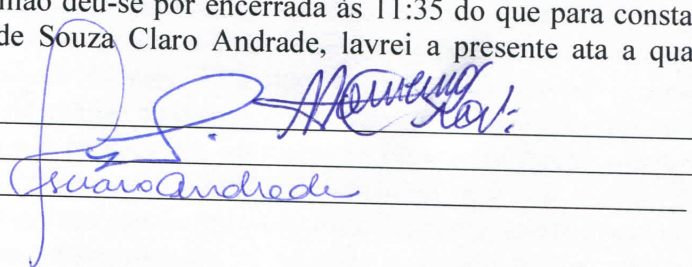 deu-se por encerrada às 11:35 do que para consta
de Souza Claro Andrade, lavrei a presente ata a qua
Andrade